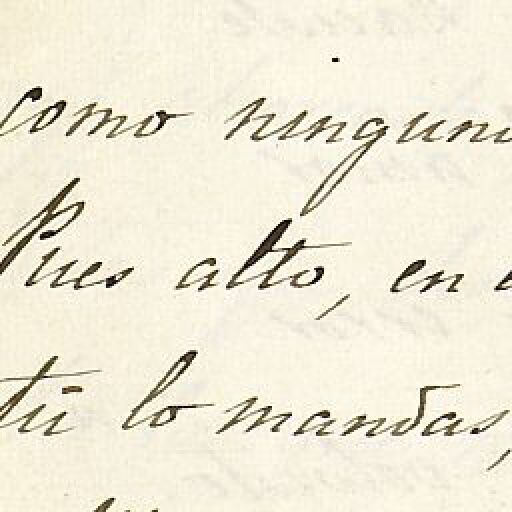 como ningun
Pues alto, en
tú lo mandas,